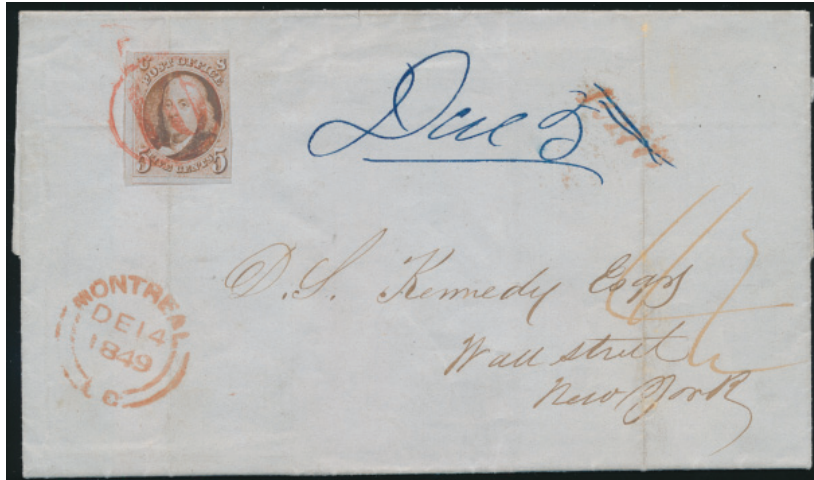 5 5
POST OFFICE
5 FIVE CENTS 5
Due 5
D. S. Kennedy Esqr
Wall Street
New York
MONTREAL
DE 14
1849
L C